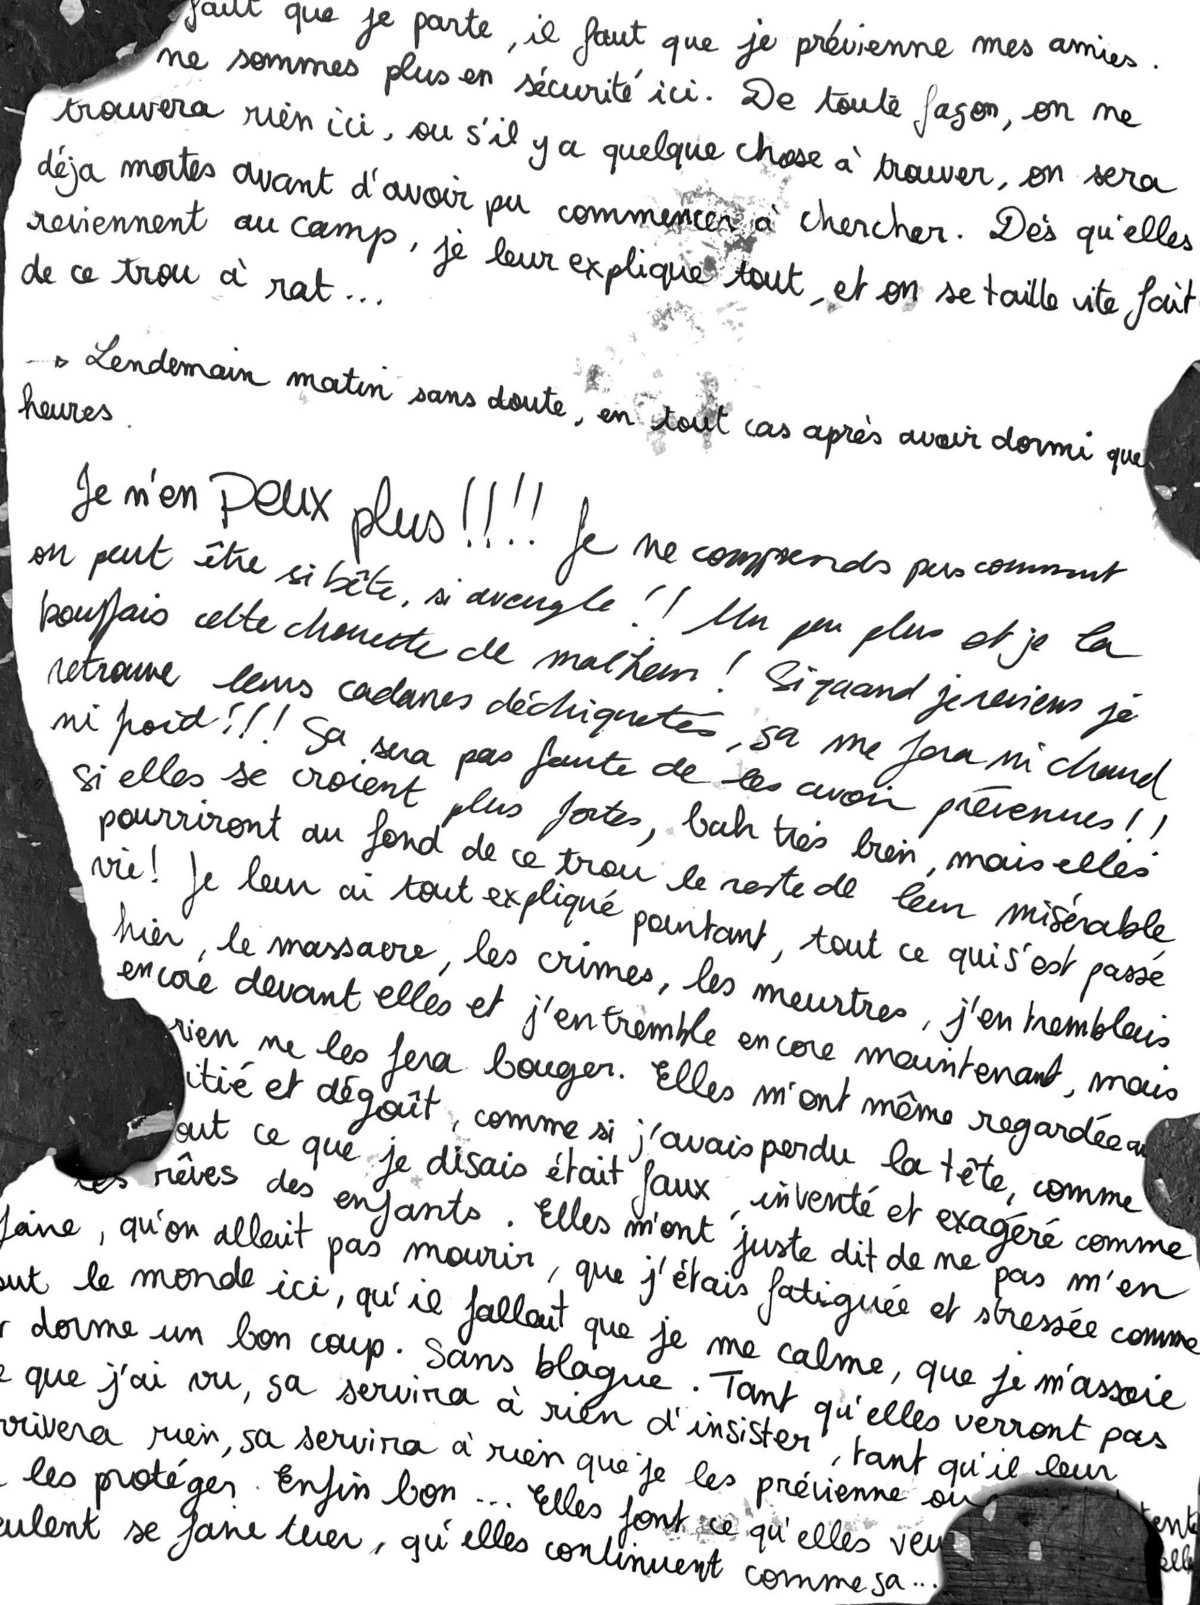 faut que je parte, il faut que je prévienne mes amies.
ne sommes plus en sécurité ici. De toute façon, on ne
trouvera rien ici, ou s'il y a quelque chose à trouver, on sera
déja mortes avant d'avoir pu commencer à chercher. Dès qu'elles
reviennent au camp, je leur explique tout, et on se taille vite fait
de ce trou à rat...
→ Lendemain matin sans doute, en tout cas après avoir dormi que
heures.
Je n'en Peux plus!!!! Je ne comprends pas comment
on peut être si bête, si aveugle!! Un peu plus et je la
bouffais cette chouette de malheur! Si quand je reviens je
retrouve leurs cadavres déchiquetés, sa me fera ni chaud
ni froid!!! Sa sera pas faute de les avoir prévenues!!
Si elles se croient plus fortes, bah très bien, mais elles
pourriront au fond de ce trou le reste de leur misérable
vie! Je leur ai tout expliqué pourtant, tout ce qui s'est passé
hier, le massacre, les crimes, les meurtres, j'en tremblais
encore devant elles et j'en tremble encore maintenant, mais
rien ne les fera bouger. Elles m'ont même regardée a
itié et dégoût, comme si j'avais perdu la tête, comme
out ce que je disais était faux, inventé et exagéré comme
les rêves des enfants. Elles m'ont juste dit de ne pas m'en
faire, qu'on allait pas mourir, que j'étais fatiguée et stressée comme
out le monde ici, qu'il fallait que je me calme, que je m'assoie
r dorme un bon coup. Sans blague. Tant qu'elles verront pas
e que j'ai vu, sa servira à rien d'insister, tant qu'il leur
rrivera rien, sa servira à rien que je les prévienne ou tent
les protéger. Enfin bon... Elles font ce qu'elles veu elle
eulent se faire tuer, qu'elles continuent comme sa...